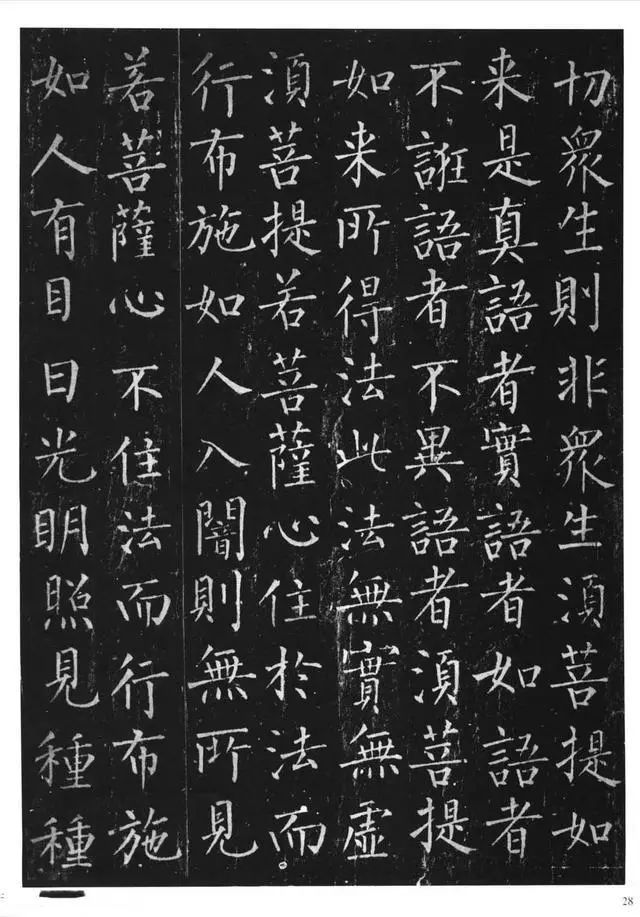 切衆生則非衆生湏菩提如
来是真語者實語者如語者
不誑語者不異語者湏菩提
如来所得法此法無實無虛
湏菩提若菩薩心住於法而
行布施如人入闇則無所見
若菩薩心不住法而行布施
如人有目日光明照見種種
28